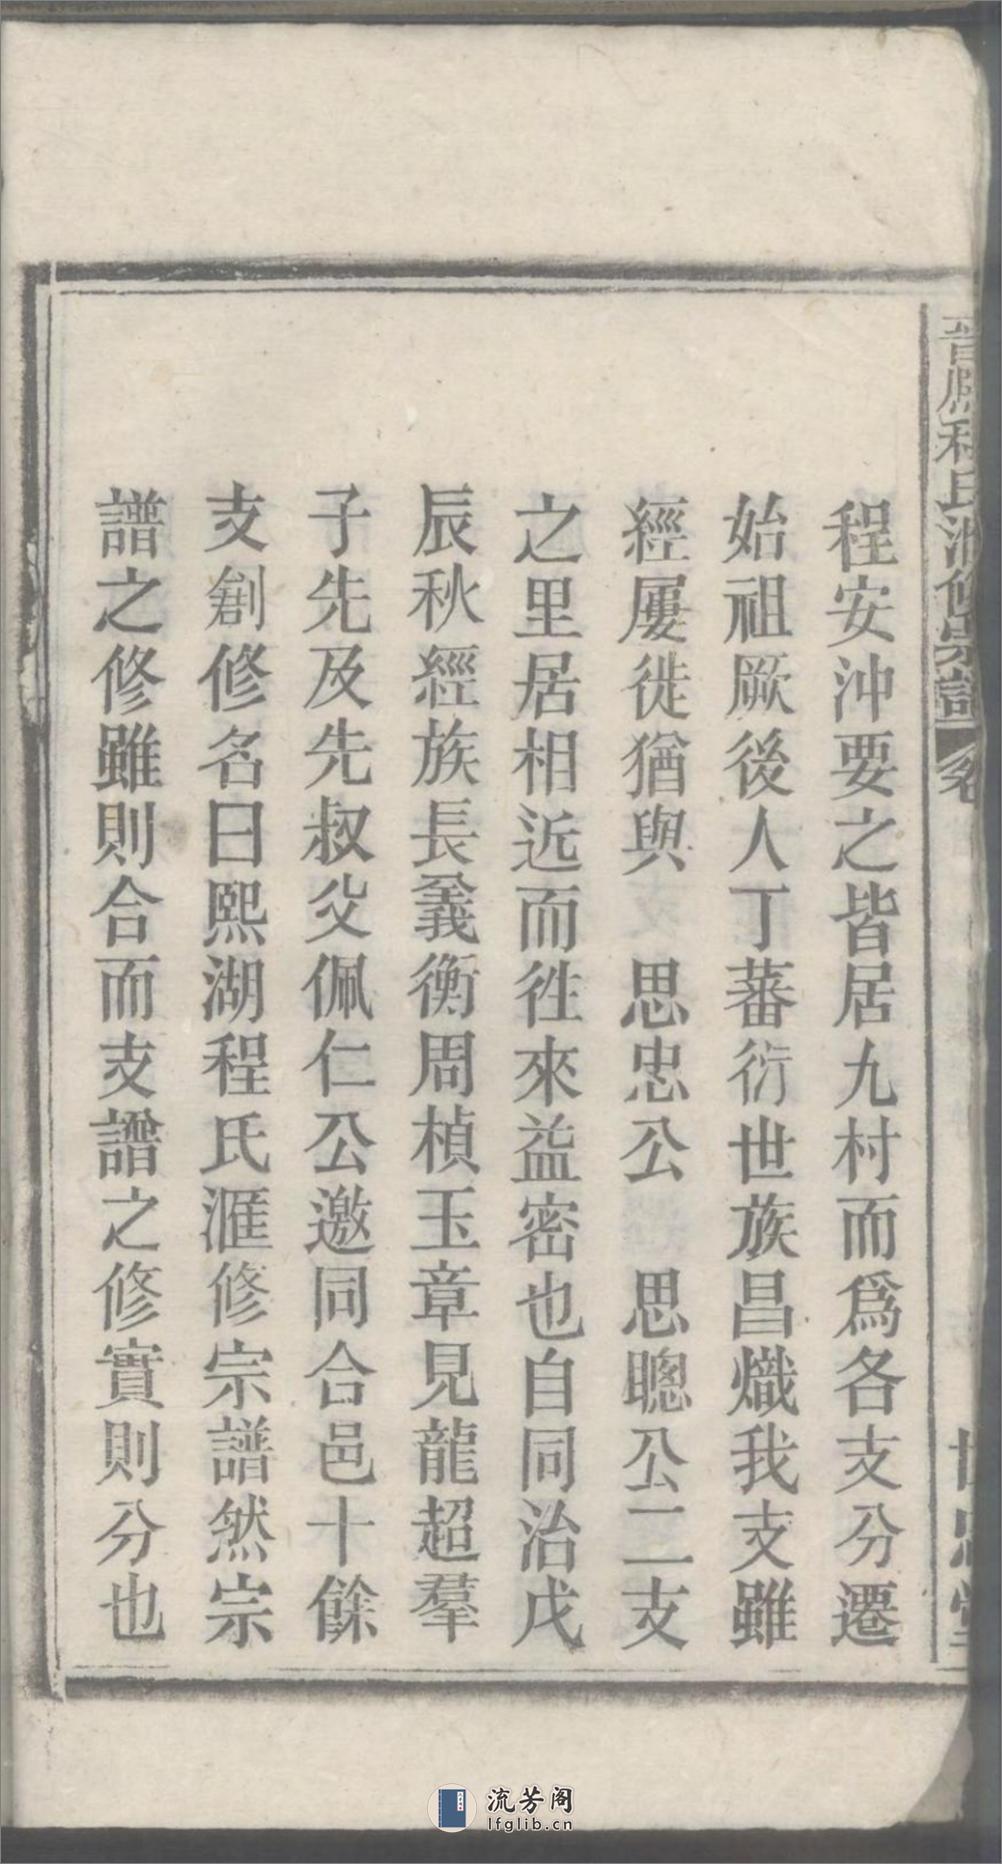 程安沖要之皆居九村而爲各支分遷
始祖厥後人丁蕃衍世族昌熾我支雖
經屢徙猶與　思忠公　思聰公二支
之里居相近而徃來益密也自同治戊
辰秋經族長義衡周楨玉章見龍超羣
子先及先叔父佩仁公邀同合邑十餘
支剏修名曰熙湖程氏滙修宗譜然宗
譜之修雖則合而支譜之修實則分也
流芳阁
lfglib.cn